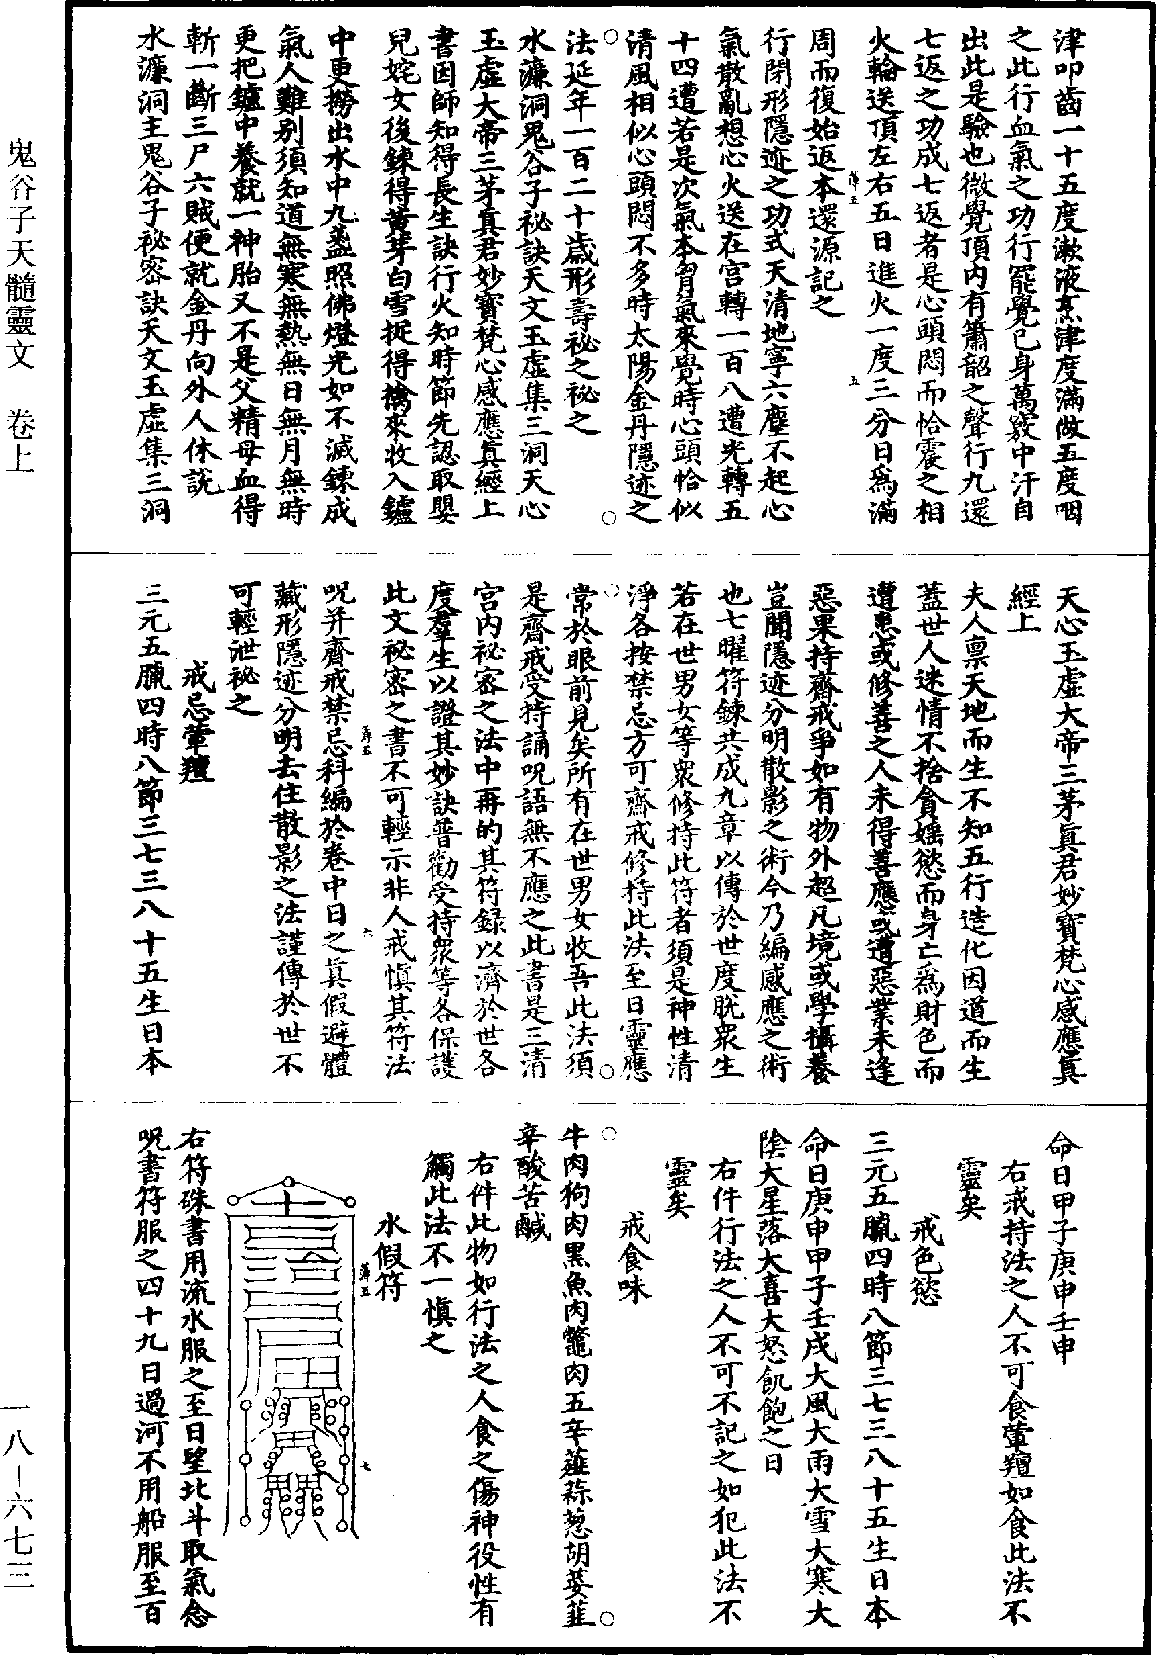 津叩齒一十五度漱液烹津度滿做五度咽
之此行血氣之功行罷覺已身萬竅中汗自
出此是驗也微覺頂內有簫韶之聲行九還
七返之功成七返者是心頭悶而恰震之相
火輪送頂左右五日進火一度三分日爲滿
周而復始返本還源記之
行閉形隱迹之功式天清地寧六塵不起心
氣散亂想心火送在宮轉一百八遭光轉五
十四遭若是次氣本胷氣來覺時心頭恰似
清風相似心頭悶不多時太陽金丹隱迹之
法延年一百二十歲形壽祕之祕之
水濂洞鬼谷子祕訣天文玉虛集三洞天心
玉虛大帝三茅真君妙寶梵心感應真經上
書因師知得長生訣行火知時節先認取嬰
兒姹女後鍊得黃芽白雪捉得擒來收入鑪
中更撈出水中九盞照佛燈光如不滅鍊成
氣人難别須知道無寒無熱無日無月無時
更把鑪中養就一神胎又不是父精母血得
斬一斷三尸六賊便就金丹向外人休說
水濂洞主鬼谷子祕密訣天文玉虛集三洞
天心玉虛大帝三茅真君妙寶梵心感應真
經上
夫人禀天地而生不知五行造化因道而生
蓋世人迷情不捨貪婬慾而身亡爲財色而
遭患或修善之人未得善應或遭惡業未逢
惡果持齋戒爭如有物外超凡境或學攝養
豈聞隱迹分明散影之術今乃編感應之術
也七曜符鍊共成九章以傳於世度脫衆生
若在世男女等衆修持此符者須是神性清
淨各按禁忌方可齋戒修持此法至日靈應
常於眼前見矣所有在世男女收吾此法須
是齋戒受持誦呪語無不應之此書是三清
宮内祕密之法中再的其符録以濟於世各
度羣生以證其妙訣普勸受持衆等各保護
此文祕密之書不可輕示非人戒慎其符法
呪并齋戒禁忌科編於卷中日之真假避體
藏形隱迹分明去住散影之法謹傳於世不
可輕泄祕之
戒忌葷羶
三元五臘四時八節三七三八十五生日本
命日甲子庚申壬申
右戒持法之人不可食葷羶如食此法不
靈矣
戒色慾
三元五臘四時八節三七三八十五生日本
命日庚申甲子壬戌大風大雨大雪大寒大
陰大星落大喜大怒飢飽之日
右件行法之人不可不記之如犯此法不
靈矣
戒食味
牛肉狗肉黑魚肉鼈肉五辛薤蒜葱胡荽韮
辛酸苦鹹
右件此物如行法之人食之傷神役性有
觸此法不一慎之
水假符
右符硃書用流水服之至日望北斗取氣念
呪書符服之四十九日過河不用船服至百
鬼谷子天髓靈文　卷上
一八－六七三